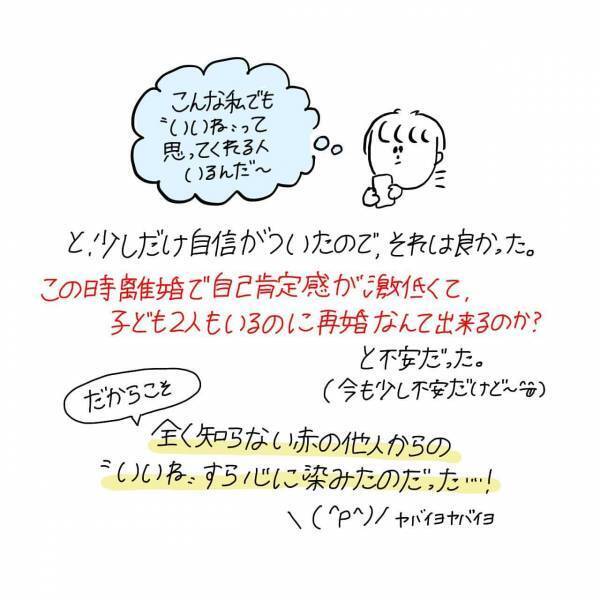 こんな私でも
〝いいね〟って
思ってくれる人
いるんだ〜
と、少しだけ自信がついたので、それは良かった。
この時離婚で自己肯定感が激低くて、
子ども2人もいるのに再婚なんて出来るのか?
と不安だった。
(今も少し不安だけど〜)
だからこそ
全く知らない赤の他人からの
〝いいね〟すら心に染みたのだった…!
\(^P^)/ ヤバイヨヤバイヨ